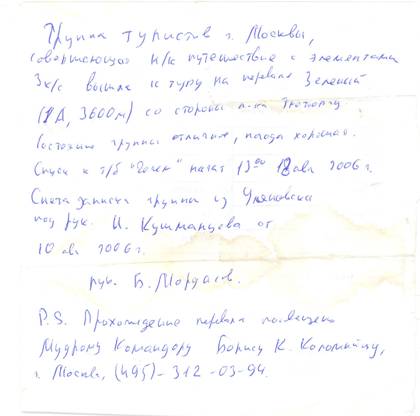 Группа туристов г. Москвы,
совершающая н/к путешествие с элементами
3 к/с вышла к туру на перевале Зеленый
(1А, 3600м) со стороны
Состояние группы отличное, погода хорошая.
Спуск к т/б "Узек" начат 13 00 12 авг 2006 г.
Снята записка группы из Ульяновска
под рук. И. Кушманцева от
10 авг 2006 г.
рук. Б. Мордасов.
P.S. Прохождение перевала посвящено
Мудрому Командору Борису К. Коломийцу,
г. Москва, (495)-312-03-94.